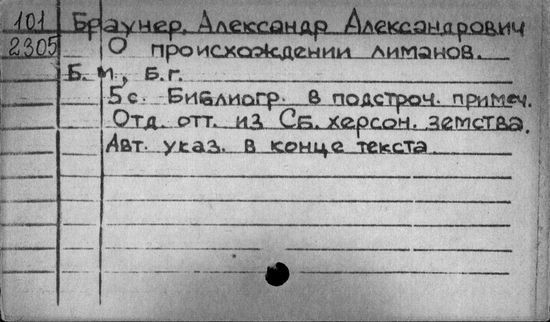 101 Браунер, Александр Александрович
2305 О происхождении лиманов.
Б. м., Б. г.
5с. Библиогр. в подстроч. примеч.
Отд. отт. из Сб. херсон. земства.
Авт. указ. в конце текста